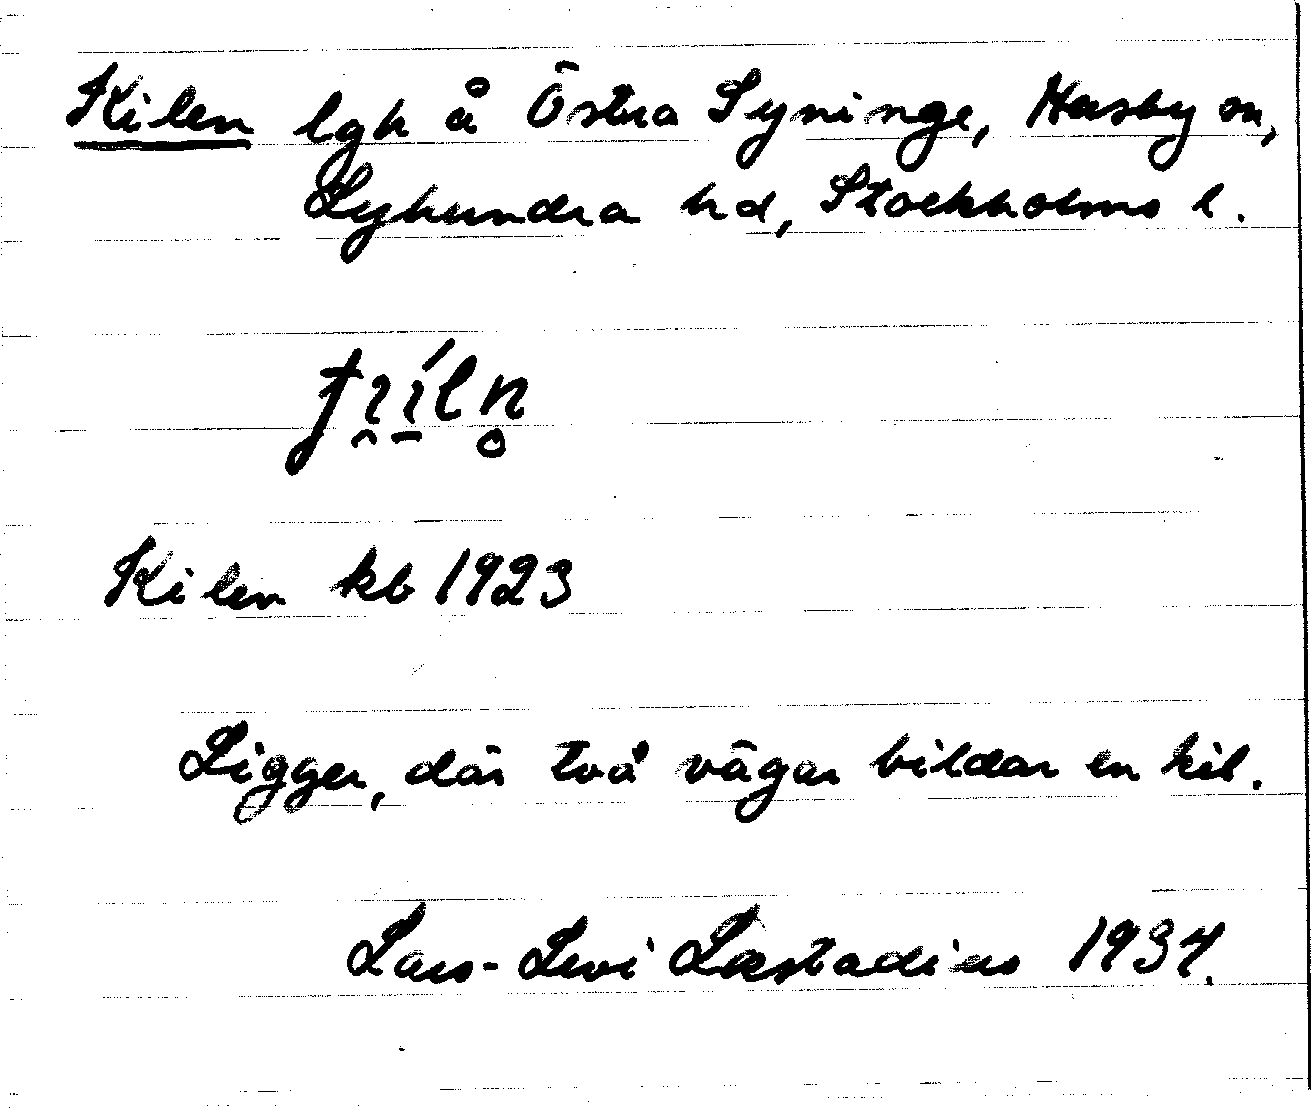 Kilen lgh å Östra Syninge, Husby sn,
Lyhundra hd, Stockholms l.
Kilen kb 1923
Ligger, där två vägar bildar en kil.
Lars-Levi Læstadius 1934.